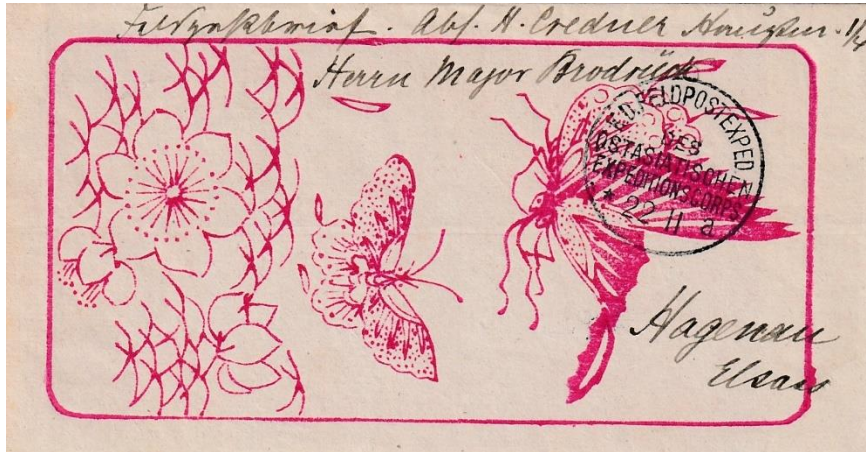 Feldpostbrief. Abs. H. Credner
Herrn Major Brodrück
K.D. FELDPOSTEXPED
DES
OSTASIATISCHEN
EXPEDITIONSCORPS.
* 22 11 a
Hagenau
Elsass